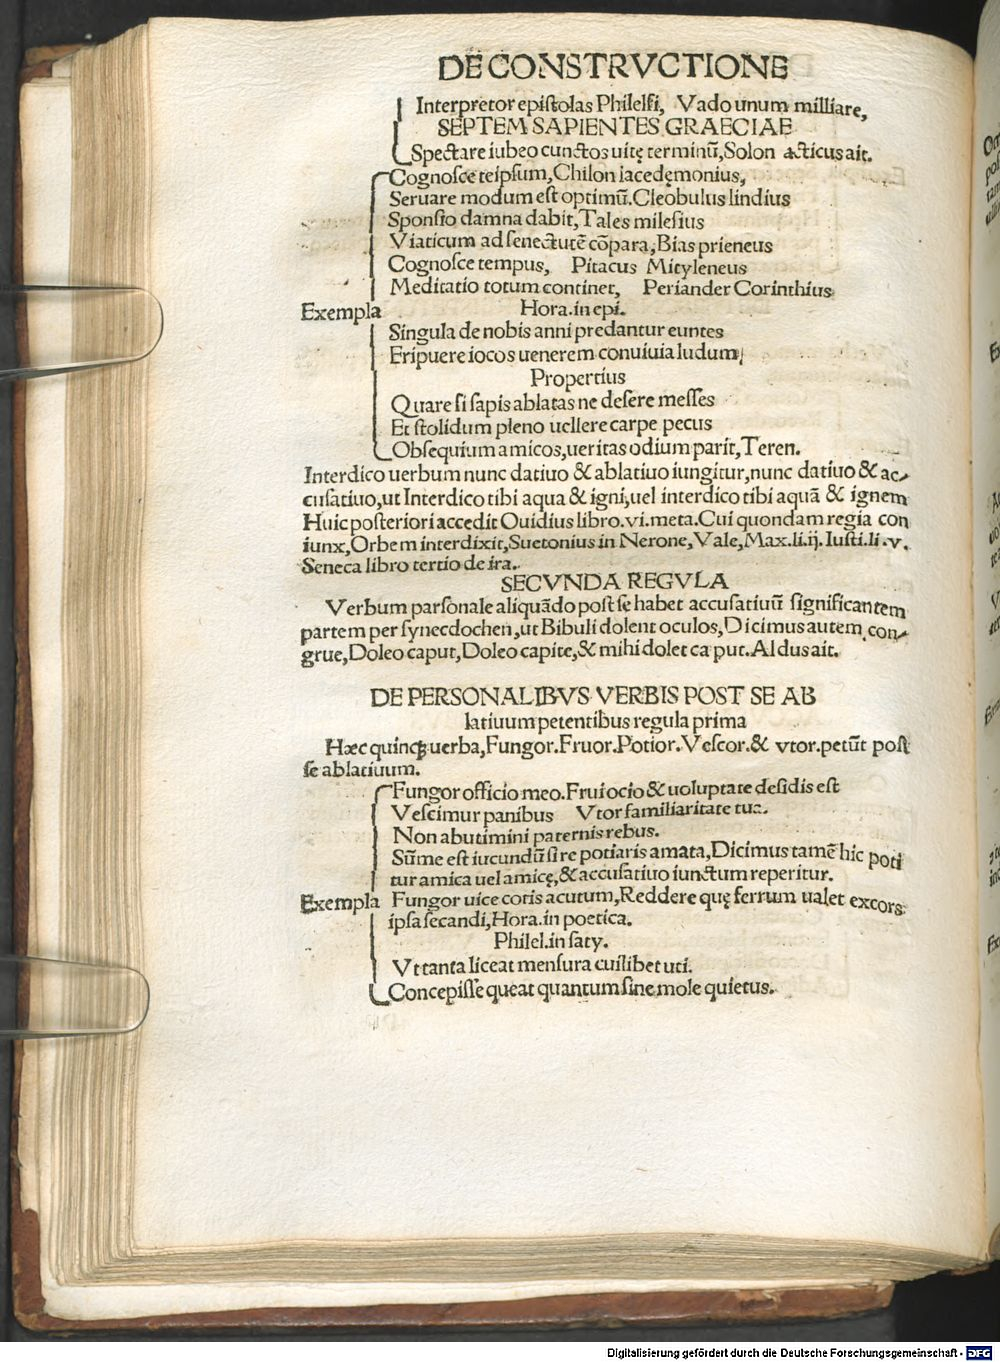 DE CONSTRVCTIONE
Interpretor epistolas Philelfi, Vado unum milliare,
SEPTEM SAPIENTES GRAECIAE
Spectare iubeo cunctos uitę terminū, Solon acticus ait.
Cognosce teipsum, Chilon lacedęmonius,
Seruare modum est optimū. Cleobulus lindius
Sponsio damna dabit, Tales milesius
Viaticum ad senectutē cōpara, Bias prieneus
Cognosce tempus, Pitacus Mityleneus
Meditatio totum continet, Periander Corinthius
Exempla Hora. in epi.
Singula de nobis anni prędantur euntes
Eripuere iocos uenerem conuiuia ludum,
Propertius
Quare si sapis ablatas ne desere messes
Et stolidum pleno uellere carpe pecus
Obsequium amicos, ueritas odium parit, Teren.
Interdico uerbum nunc datiuo & ablatiuo iungitur, nunc datiuo & ac-
cusatiuo, ut Interdico tibi aqua & igni, uel interdico tibi aquā & ignem
Huic posteriori accedit Ouidius libro. vi. meta. Cui quondam regia con
iunx, Orbem interdixit, Suetonius in Nerone, Vale, Max. li. ij. Iusti. li. v.
Seneca libro tertio de ira.
SECVNDA REGVLA
Verbum parsonale aliquādo post se habet accusatiuū significantem
partem per synecdochen, ut Bibuli dolent oculos, Dicimus autem con-
grue, Doleo caput, Doleo capite, & mihi dolet caput. Aldus ait.
DE PERSONALIBVS VERBIS POST SE AB
latiuum petentibus regula prima
Hæc quinqȝ uerba, Fungor. Fruor. Potior. Vescor. & vtor. petūt post
se ablatiuum.
Fungor officio meo. Frui ocio & uoluptate desidis est
Vescimur panibus Vtor familiaritate tua.
Non abutimini paternis rebus.
Sūme est iucundū si re potiaris amata, Dicimus tamē hic poti
tur amica uel amicę, & accusatiuo iunctum reperitur.
Exempla Fungor uice cotis acutum, Reddere quę ferrum ualet excors
ipsa secandi, Hora. in poetica.
Philel. in saty.
Vt tanta liceat mensura cuilibet uti.
Concepisse queat quantum sine mole quietus.
Digitalisierung gefördert durch die Deutsche Forschungsgemeinschaft - DFG